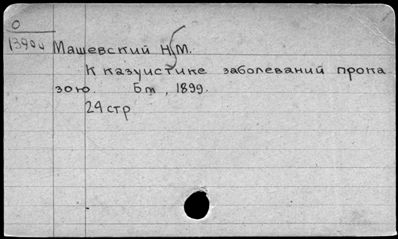 О
Машевский Н.М.
К казуистике заболеваний прока
зою. Бм, 1899.
24 стр